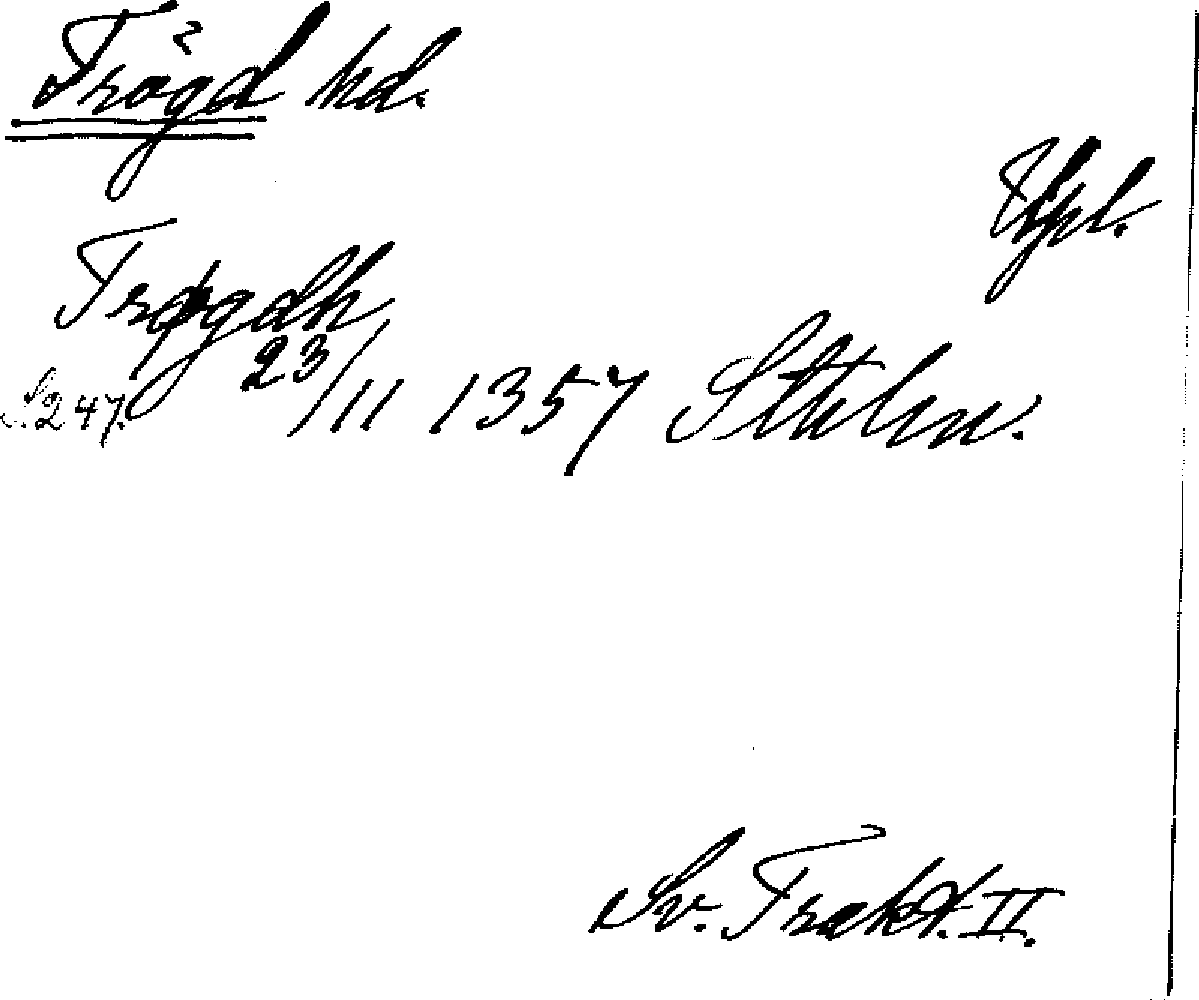 Trögd hd.
Uppl.
Trøgdh
S. 247. 23/11 1357 Sthlm.
Sv. Trakt. II.